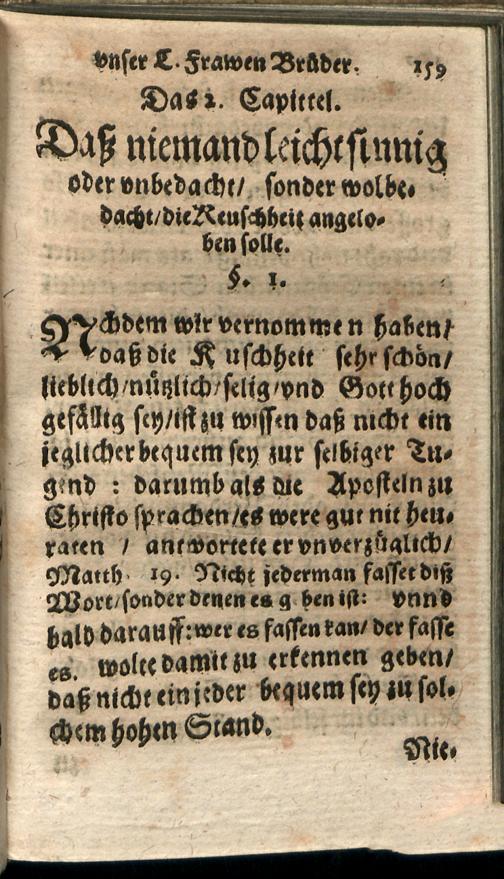 vnser L. Frawen Brüder. 159
Das 2. Capittel.
Daß niemand leichtsinnig
oder vnbedacht/ sonder wolbe-
dacht/die Keuschheit angelo-
ben solle.
§. 1.
Nchdem wir vernommen haben/
daß die K uschheit sehr schön/
lieblich/nützlich/selig/vnd Gott hoch
gefällig sey/ist zu wissen daß nicht ein
jeglicher bequem sey zur selbiger Tu-
gend : darumb als die Aposteln zu
Christo sprachen/es were gut nit heu-
raten / antwortete er vnverzüglich/
Matth. 19. Nicht jederman fasset diß
Wort/sonder denen es g ben ist: vnnd
bald darauff:wer es fassen kan/ der fasse
es. wolte damit zu erkennen geben/
daß nicht ein jeder bequem sey zu sol-
chem hohen Stand.
Nie-